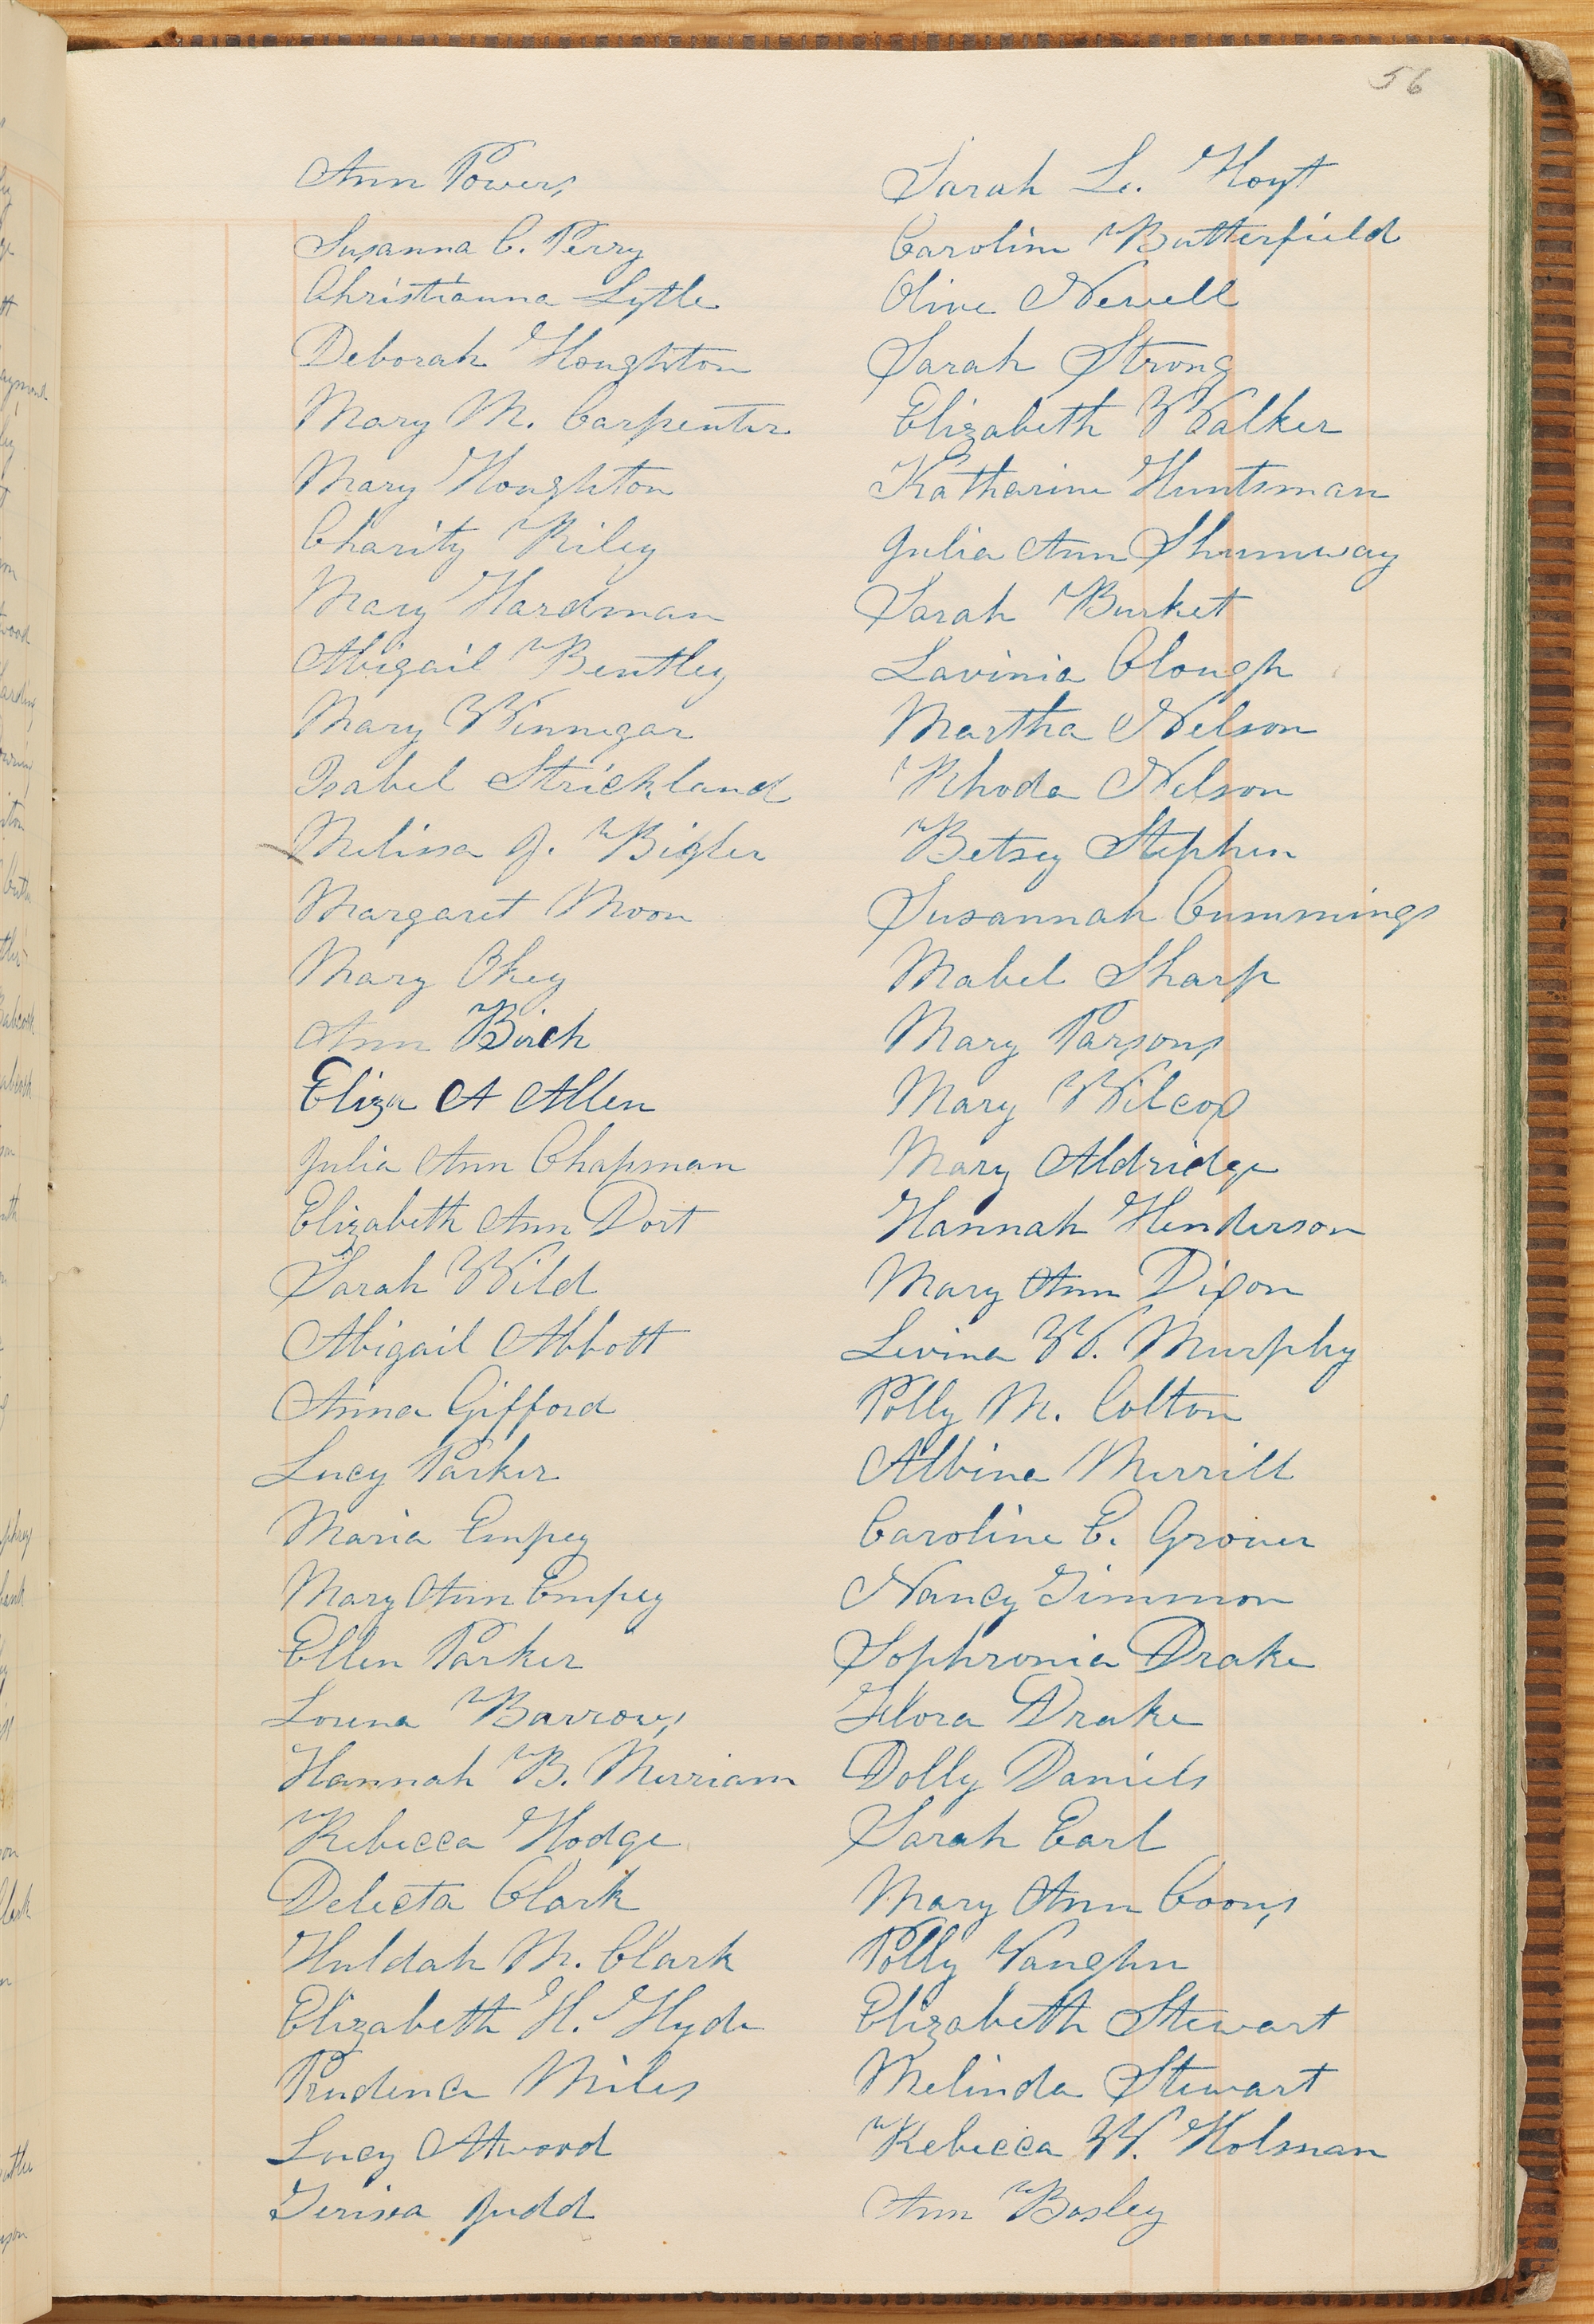 56
Ann Powers
Susanna C. Perry
Christianna Lytle
Deborah Houghton
Mary M. Carpenter
Mary Houghton
Charity Riley
Mary Hardman
Abigail Bentley
Mary Winnegar
Isabel Strickland
Melissa J. Bigler
Margaret Moon
Mary Okey
Ann Birch
Eliza A Allen
Julia Ann Chapman
Elizabeth Ann Dort
Sarah Wild
Abigail Abbott
Anna Gifford
Lucy Parker
Maria Empey
Mary Ann Empey
Ellen Parker
Lorena Barrows
Hannah B. Merriam
Rebecca Hodge
Delecta Clark
Huldah M. Clark
Elizabeth H. Hyde
Prudence Miles
Lucy Attwood
Terissa Judd
Sarah L. Hoyt
Caroline Butterfield
Olive Newell
Sarah Strong
Elizabeth Walker
Katharine Huntsman
Julia Ann Shumway
Sarah Burket
Lavinia Clough
Martha Nelson
Rhoda Nelson
Betsey Stephen
Susannah Cummings
Mabel Sharp
Mary Parsons
Mary Wilcox
Mary Aldridge
Hannah Henderson
Mary Ann Dixon
Levina W. Murphy
Polly M. Colton
Albina Merrill
Caroline E. Grover
Nancy Timmon
Sophronia Drake
Flora Drake
Dolly Daniels
Sarah Earl
Mary Ann Coons
Polly Vaughn
Elizabeth Stewart
Melinda Stewart
Rebecca W. Holman
Ann Bosley